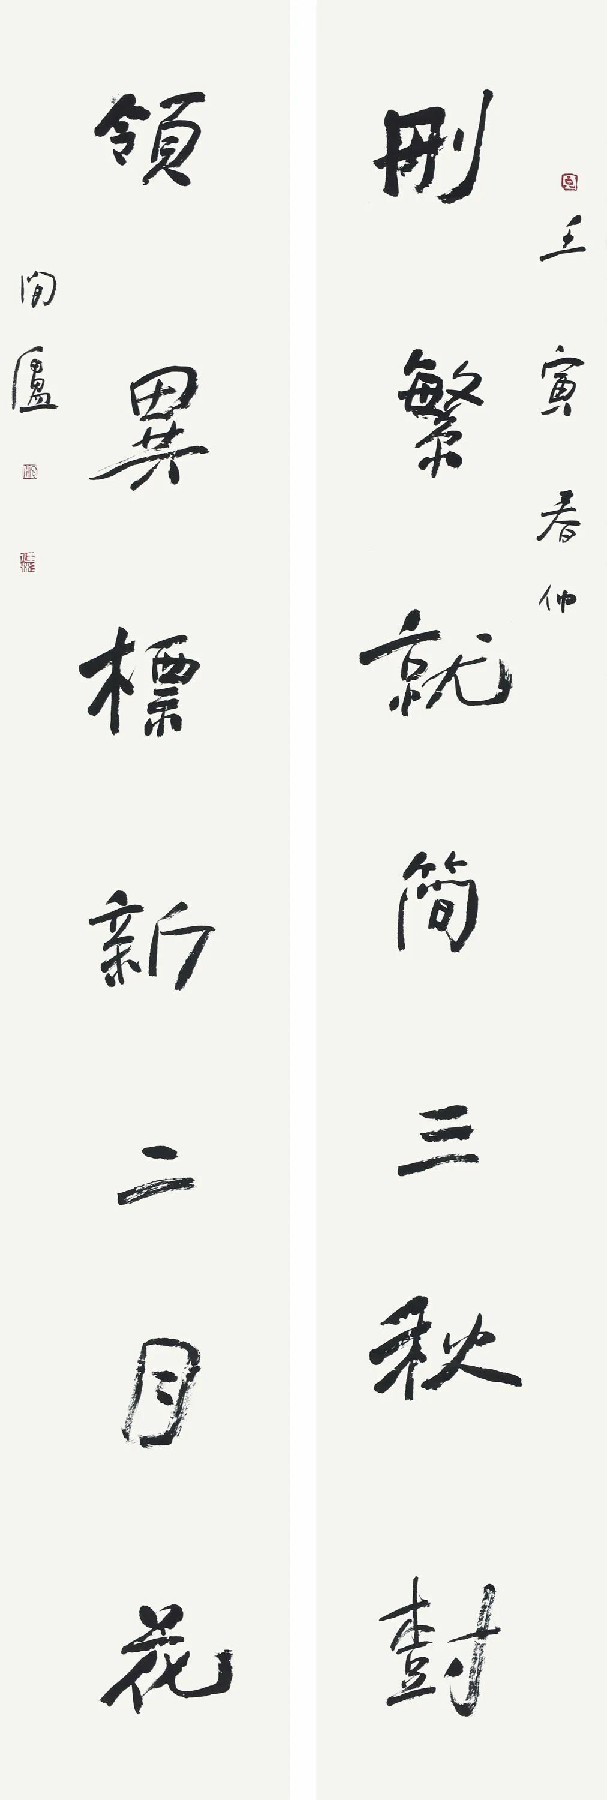 壬寅春仲
刪繁就簡三秋樹
領異標新二月花